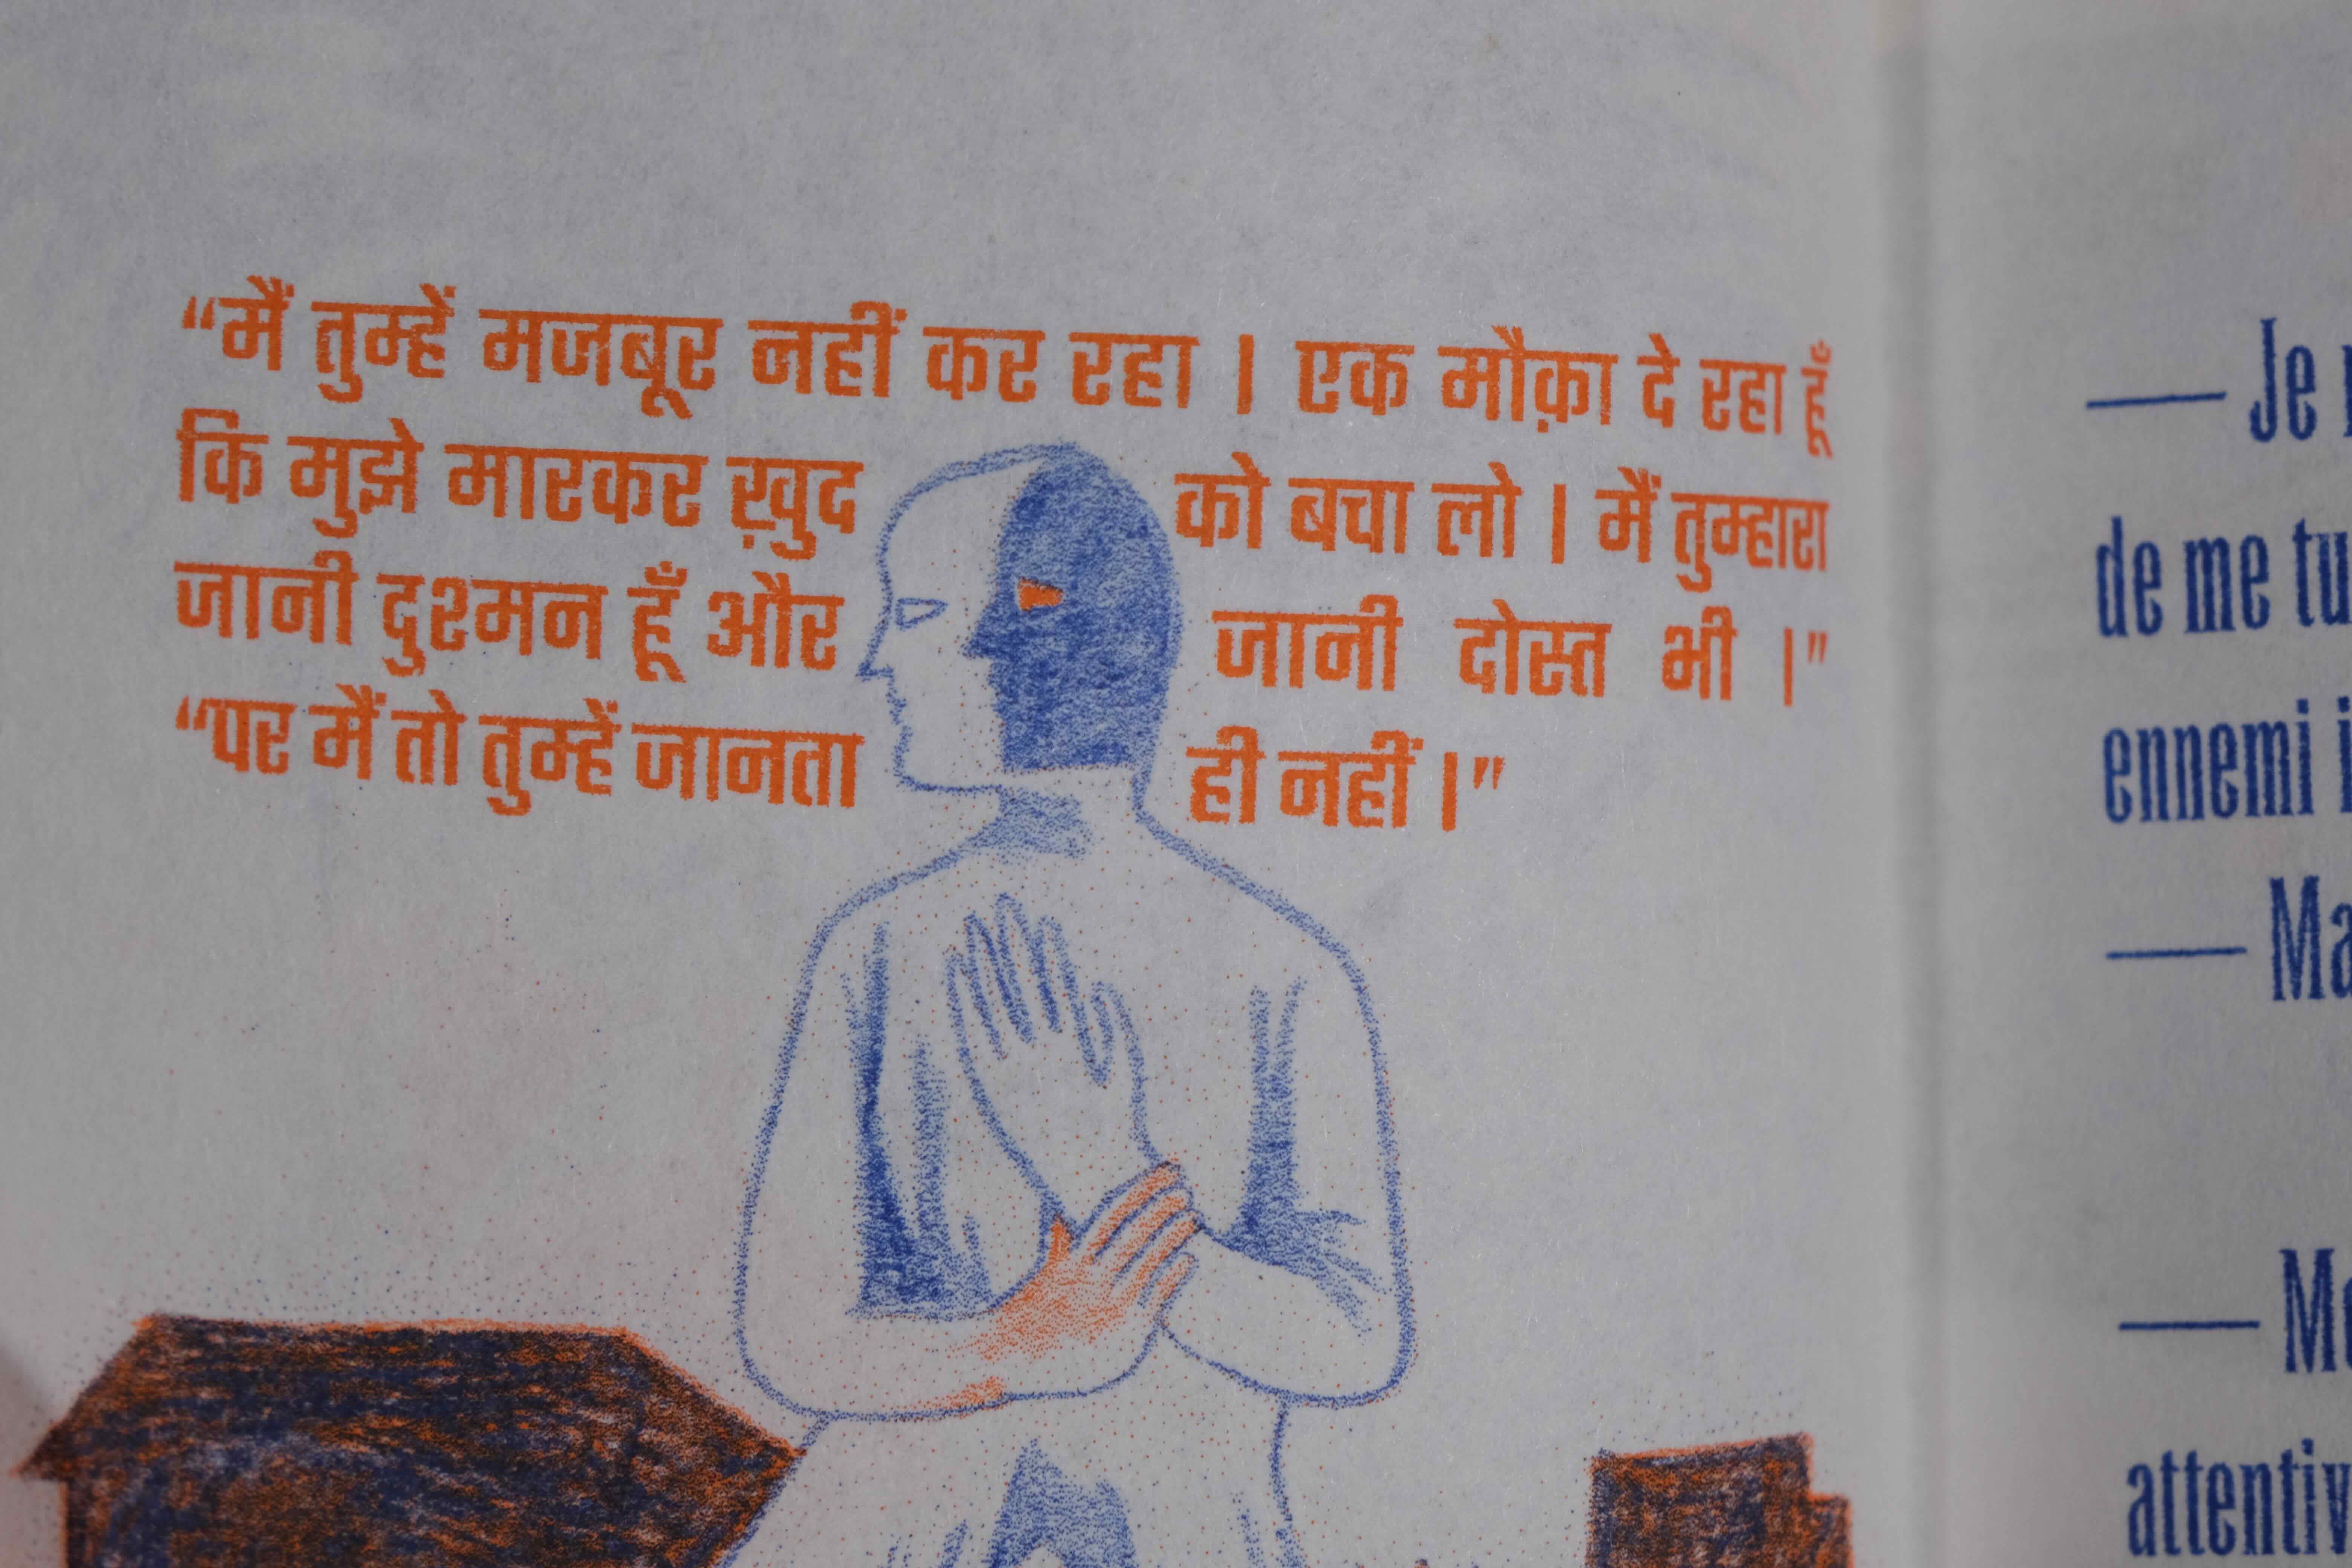 “मैं तुम्हें मजबूर नहीं कर रहा । एक मौक़ा दे रहा हूँ
कि मुझे मारकर ख़ुद को बचा लो । मैं तुम्हारा
जानी दुश्मन हूँ और जानी दोस्त भी ।”
“पर मैं तो तुम्हें जानता ही नहीं ।”
— Je
de me tu
ennemi
— Ma
—
attentiv